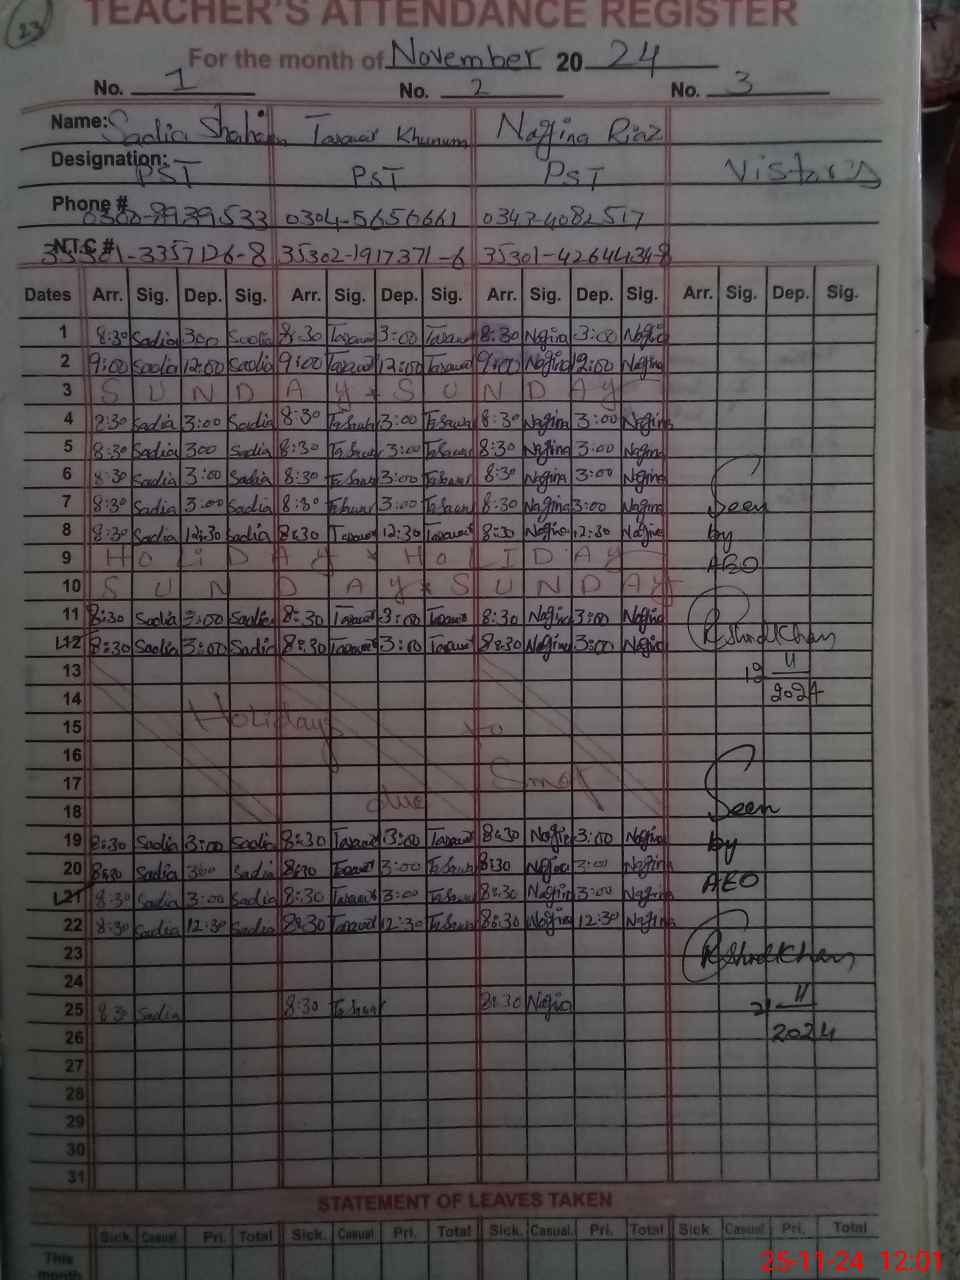 23
TEACHER'S ATTENDANCE REGISTER
For the month of November 20 24
No. 1 No. 2 No. 3
Name: Sadia Tasawar Khunum Nagina Riaz
Designation: PST PST PST Visitor's
Phone # 0300-8939533 0304-5656661 0347-4082517
N.I.C # 35301-3357126-8 35302-1917371-6 35301-4264434-8
Dates Arr. Sig. Dep. Sig. Arr. Sig. Dep. Sig. Arr. Sig. Dep. Sig. Arr. Sig. Dep. Sig.
1 8:30 Sadia 300 Sadia 8:30 Tasawar 3:00 Tasawar 8:30 Nagina 3:00 Nagina
2 9:00 Sadia 12:00 Sadia 9:00 Tasawar 12:00 Tasawar 9:00 Nagina 12:00 Nagina
3 SUNDAY * SUNDAY
4 8:30 Sadia 3:00 Sadia 8:30 Tasawar 3:00 Tasawar 8:30 Nagina 3:00 Nagina
5 8:30 Sadia 300 Sadia 8:30 Tasawar 3:00 Tasawar 8:30 Nagina 3:00 Nagina
6 8:30 Sadia 3:00 Sadia 8:30 Tasawar 3:00 Tasawar 8:30 Nagina 3:00 Nagina
7 8:30 Sadia 3:00 Sadia 8:30 Tasawar 3:00 Tasawar 8:30 Nagina 3:00 Nagina Seen
8 8:30 Sadia 12:30 Sadia 8:30 Tasawar 12:30 Tasawar 8:30 Nagina 12:30 Nagina by
9 HOLIDAY * HOLIDAY AEO
10 SUNDAY * SUNDAY
11 8:30 Sadia 3:00 Sadia 8:30 Tasawar 3:00 Tasawar 8:30 Nagina 3:00 Nagina
12 8:30 Sadia 3:00 Sadia 8:30 Tasawar 3:00 Tasawar 8:30 Nagina 3:00 Nagina
13 11
14 2024
15 Holidays
16
17 Smog
18 due Seen
19 8:30 Sadia 3:00 Sadia 8:30 Tasawar 3:00 Tasawar 8:30 Nagina 3:00 Nagina by
20 8:30 Sadia 300 Sadia 8:30 Tasawar 3:00 Tasawar 8:30 Nagina 3:00 Nagina AEO
21 8:30 Sadia 3:00 Sadia 8:30 Tasawar 3:00 Tasawar 8:30 Nagina 3:00 Nagina
22 8:30 Sadia 12:30 Sadia 8:30 Tasawar 12:30 Tasawar 8:30 Nagina 12:30 Nagina
23
24
25 8:30 Sadia 8:30 Tasawar 8:30 Nagina 21-11
26 2024
27
28
29
30
31
STATEMENT OF LEAVES TAKEN
Sick. Casual Pri. Total Sick. Casual Pri. Total Sick. Casual. Pri. Total Sick. Casual Pri. Total
This month
25-11-24 12:01